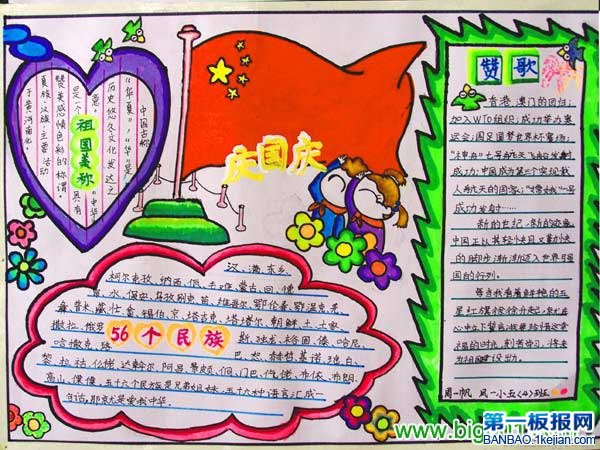 祖国美称
中国古称
“华夏”,“华”是
历史悠久文化发达之
意。
是一个
“中华”
具有
赞美感情色彩的称谓。
夏族、汉族,主要活动
于黄河南北。
庆国庆
赞歌
香港、澳门的回归;
加入WTO组织;成功举办奥
运会;国足圆梦世界杯赛场;
“神舟”七号航天飞船发射
成功;中国成为第三个实现载
人航天的国家;“嫦娥”一号
成功发射……
新的世纪,新的姿态,
中国正以其轻快且又
的脚步渐渐迈入世界强
国的行列。
每当我看着鲜艳的五
星红旗徐徐升起,我在
心中立下誓言:我要珍惜这幸
福的时光,刻苦学习,将来
为祖国建设出力。
周一帆 凤一小五〈4〉班
56个民族
汉、满、东乡、
柯尔克孜、纳西、佤、土家、蒙古、回、傣、
景、水、保安、乌孜别克、苗、维吾尔、鄂伦春、鄂温克、
彝、普米、藏、壮、畲、锡伯、京、塔吉克、塔塔尔、朝鲜、土、
撒拉、俄罗斯、独龙、裕固、傣、哈尼、
哈萨克、珠巴、怒、赫哲、基诺、独白、
黎、拉祜、仡佬、达斡尔、阿昌、景颇、侗、门巴、布依、布朗、
高山、傈僳,五十六个民族是兄弟姐妹,五十六种语言汇成一
句话,那就是爱我中华。
www.big
第一板报网
BANBAO.1kejian.com